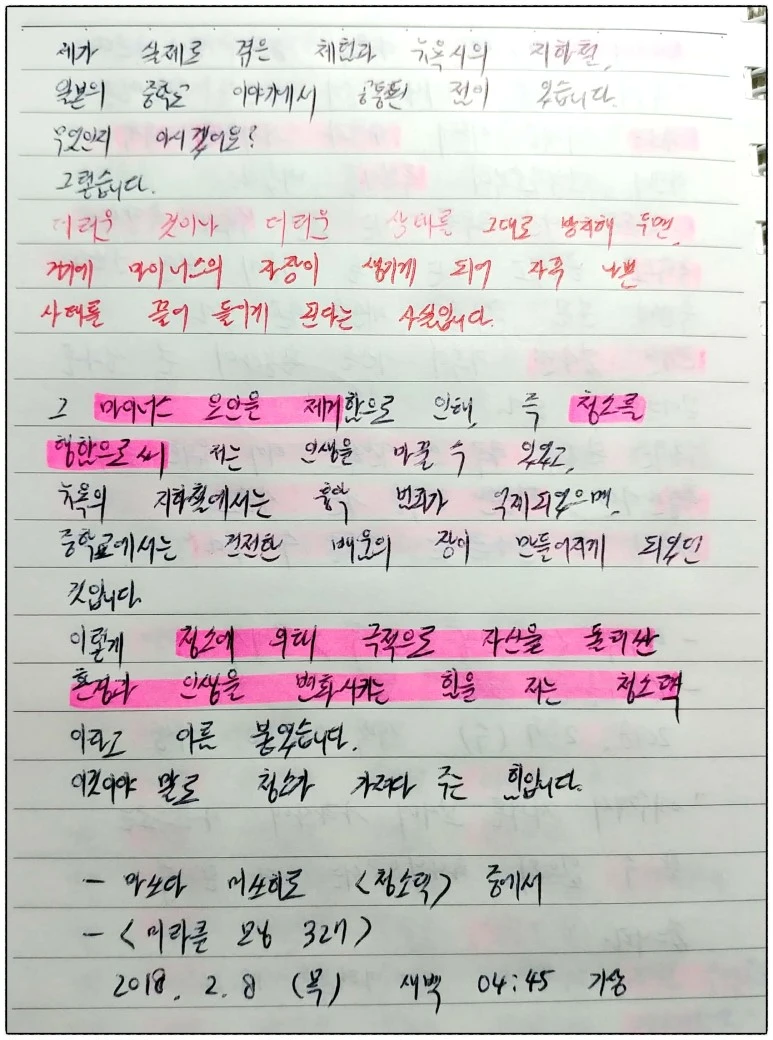 제가 실제로 겪은 체험과 뉴욕시의 지하철,
일본의 중학교 이야기에서 공통된 점이 있습니다.
무엇인지 아시겠어요?
그렇습니다.
더러운 것이나 더러운 상태를 그대로 방치해 두면,
거기에 마이너스의 자장이 생기게 되어 자꾸 나쁜
사태를 끌어 들이게 된다는 사실입니다.
그 마이너스 요인을 제거함으로 인해, 즉 청소를
행함으로써 저는 인생을 바꿀 수 있었고,
뉴욕의 지하철에서는 흉악 범죄가 억제되었으며,
중학교에서는 건전한 배움의 장이 만들어지게 되었던
것입니다.
이렇게 청소에 의해 극적으로 자신을 둘러싼
환경과 인생을 변화시키는 힘을 저는 청소력
이라고 이름 붙였습니다.
이것이야 말로 청소가 가져다 주는 힘입니다.
- 마쓰다 미쓰히로 <청소력> 중에서
- <미라클 모닝 32기>
2018. 2. 8 (목) 새벽 04:45 기상